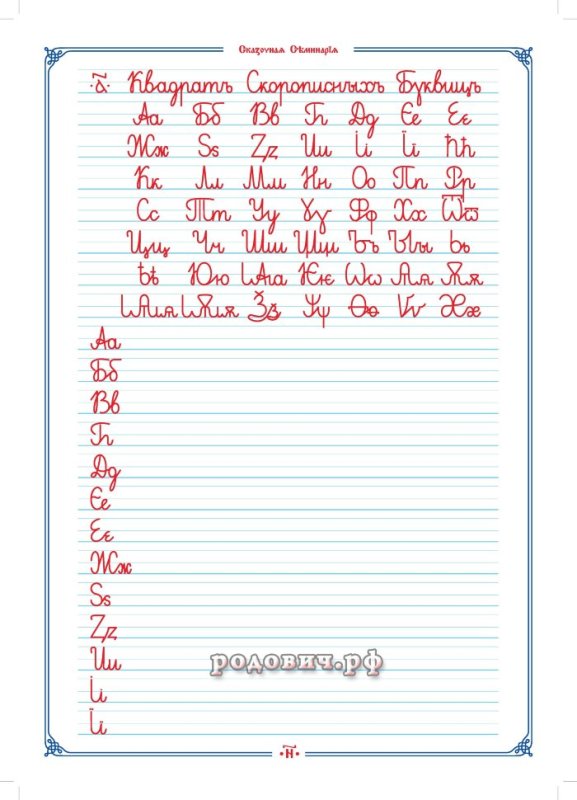 Сказочная Сѣминарїя
·а҃· Квадратъ Скорописныхъ Буквицъ
Аа Бб Вв Гг Дд Єе Ее
Жж Ѕѕ Zz Ии Іі Її Ћћ
Кк Лл Мм Нн Оо Пп Рр
Сс Тт Уу Ɣɣ Фф Хх Ѿѿ
Цц Чч Шш Щщ Ъъ Ыы Ьь
Ѣѣ Юю Ꙗꙗ Ѥѥ Ѡѡ Ѧѧ Ѫѫ
Ѩѩ Ѭѭ Ѯѯ Ѱѱ Ѳѳ Ѵѵ Ӕӕ
Аа
Бб
Вв
Гг
Дд
Єе
Ее
Жж
Ѕѕ
Zz
Ии
Іі
Її
родович.рф
·н҃·